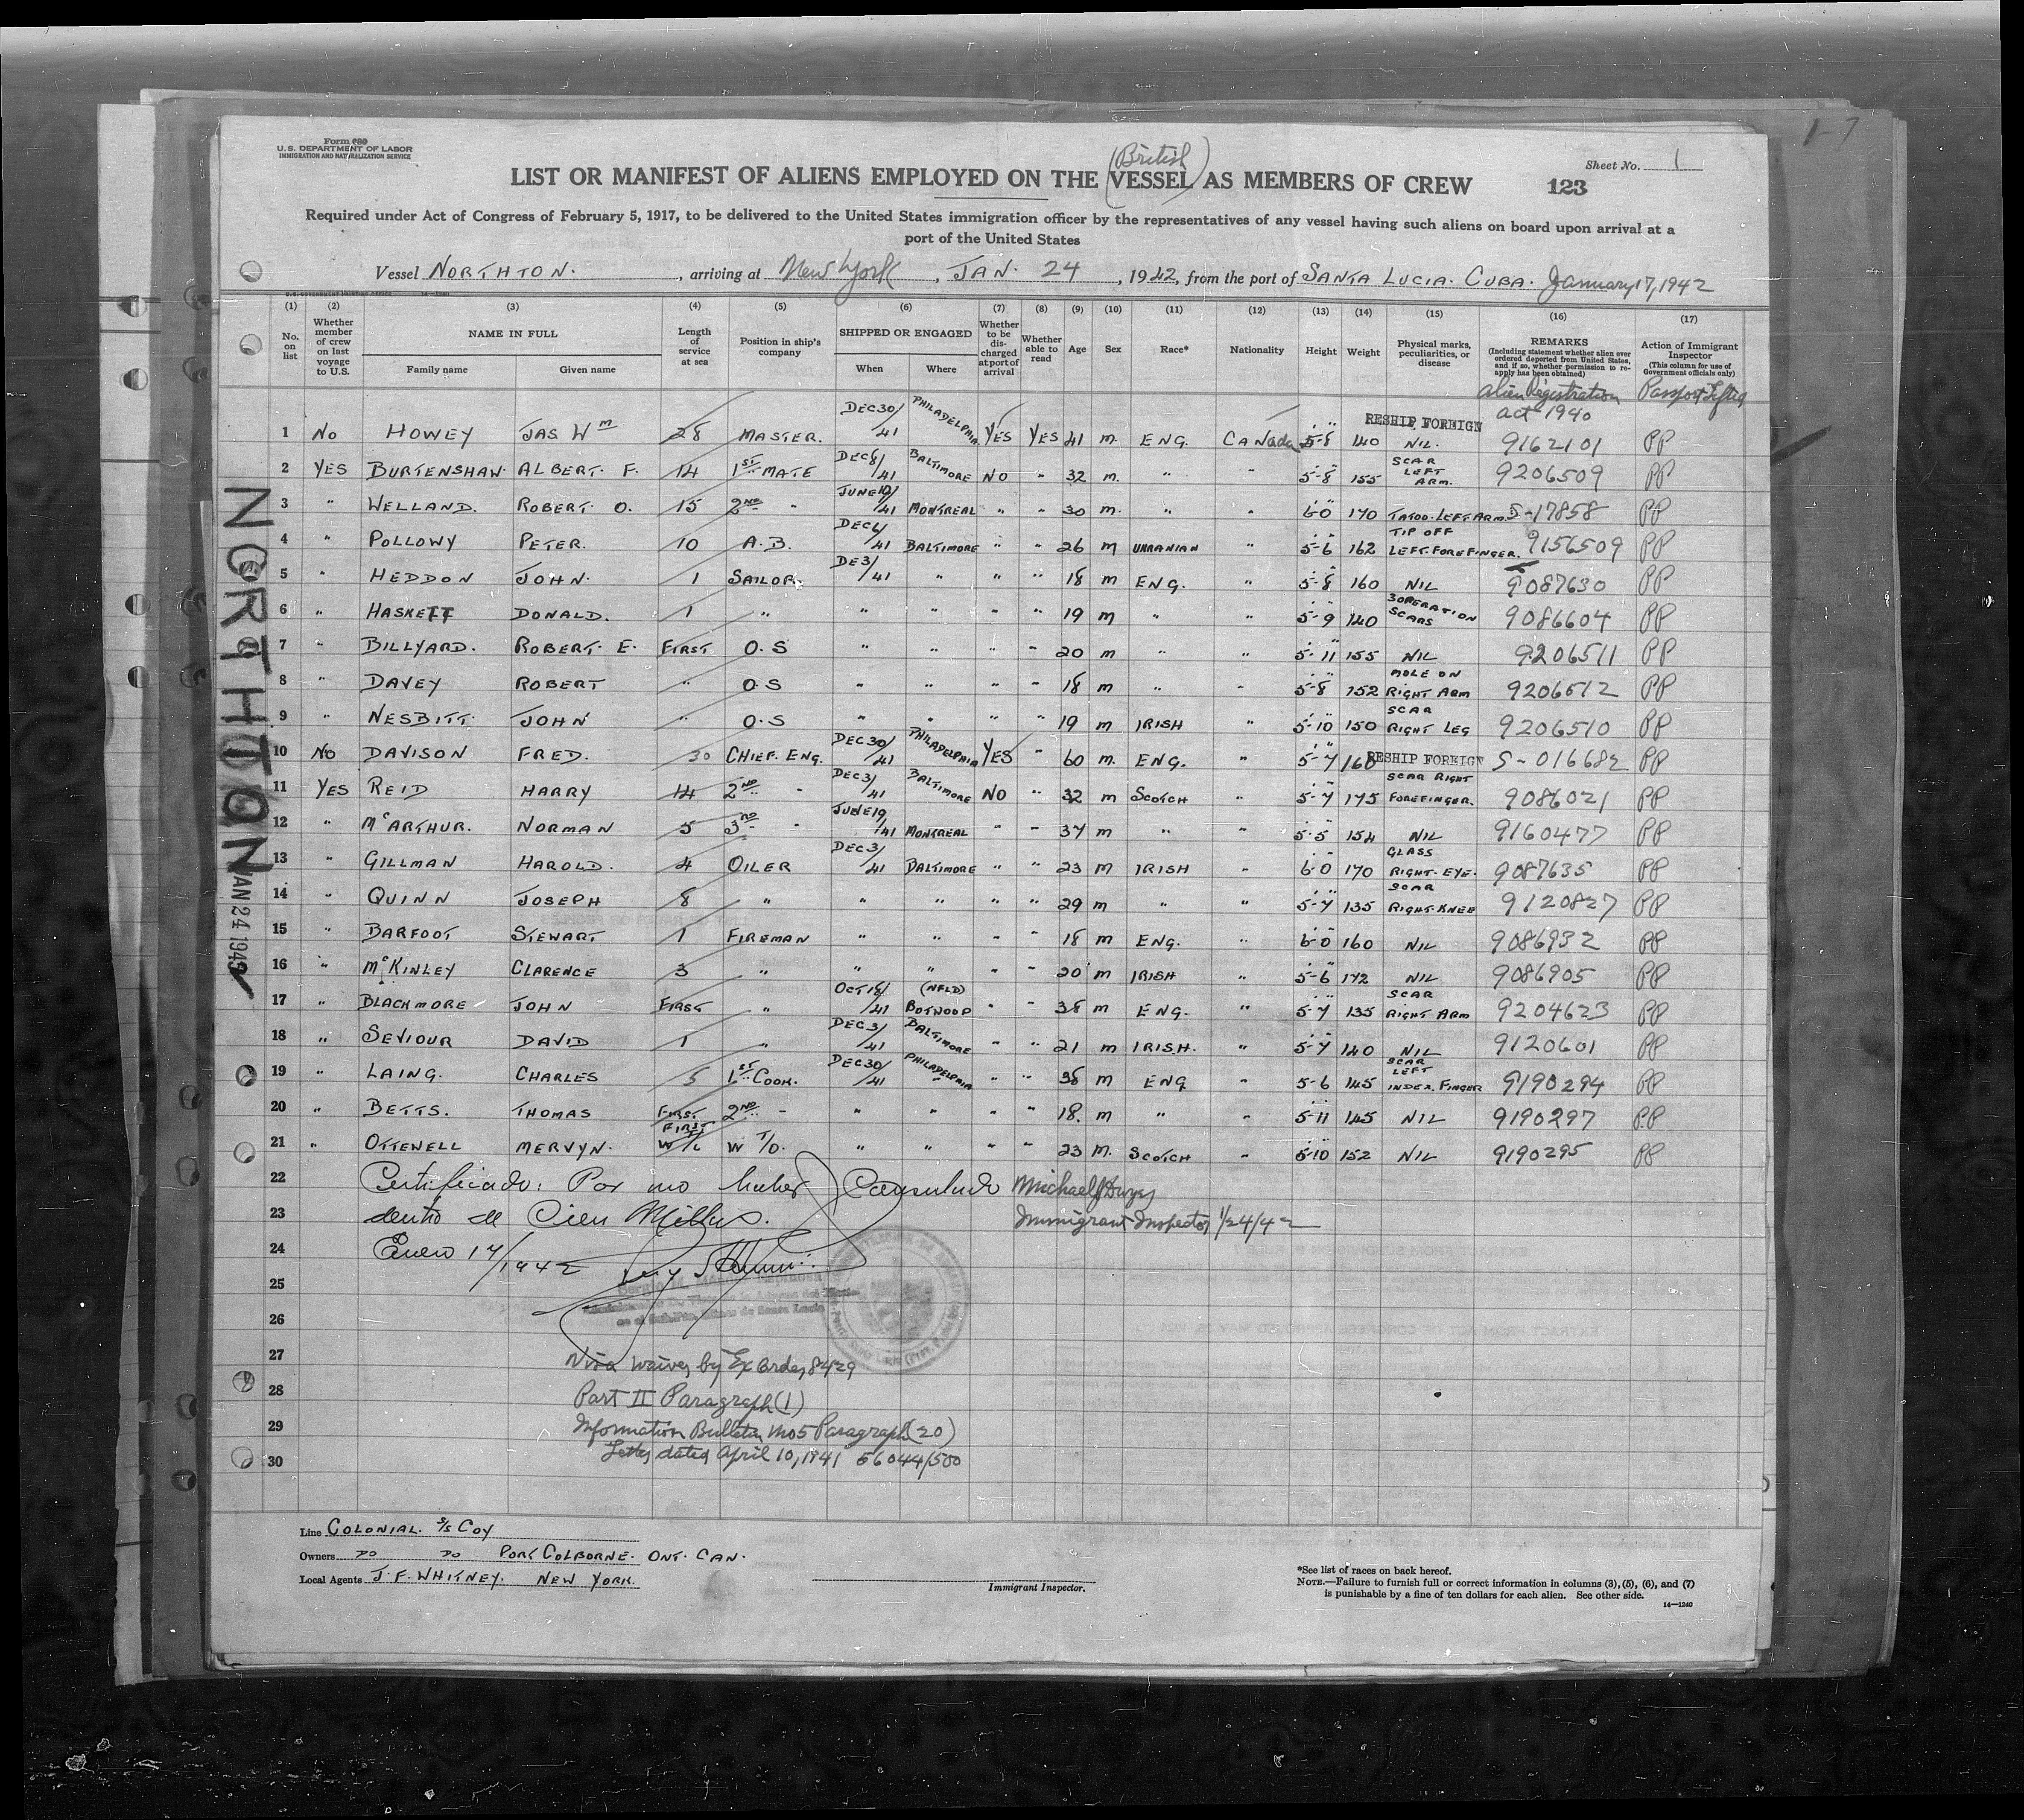 1-7
Form 680
U.S. DEPARTMENT OF LABOR
IMMIGRATION AND NATURALIZATION SERVICE
Sheet No. 1
(British)
LIST OR MANIFEST OF ALIENS EMPLOYED ON THE VESSEL AS MEMBERS OF CREW 123
Required under Act of Congress of February 5, 1917, to be delivered to the United States immigration officer by the representatives of any vessel having such aliens on board upon arrival at a
port of the United States
Vessel NORTHTON. , arriving at New York , JAN. 24 , 1942, from the port of SANTA LUCIA. CUBA. January 17, 1942
(1) (2) (3) (4) (5) (6) (7) (8) (9) (10) (11) (12) (13) (14) (15) (16) (17)
No. on list Whether member of crew on last voyage to U.S. NAME IN FULL Family name Given name Length of service at sea Position in ship's company SHIPPED OR ENGAGED When Where Whether to be discharged at port of arrival Whether able to read Age Sex Race* Nationality Height Weight Physical marks, peculiarities, or disease REMARKS (Including statement whether alien ever ordered deported from United States, and if so, whether permission to reapply has been obtained) Action of Immigrant Inspector (This column for use of Government officials only)
Alien Registration Act 1940 Passport Lifted
1 No HOWEY JAS Wm 28 MASTER. DEC 30/41 PHILADELPHIA YES YES 41 m. ENG. CANada 5-8 140 RESHIP FOREIGN NIL. 9162101 PP
2 YES BURTENSHAW. ALBERT. F. 14 1ST MATE DEC 8/41 BALTIMORE NO " 32 m. " " 5-8 155 SCAR LEFT ARM. 9206509 PP
3 " WELLAND. ROBERT. O. 15 2ND " JUNE 19/41 MONTREAL " " 30 m. " " 6-0 170 TATOO. LEFT ARM. 5-17858 PP
4 " POLLOWY PETER. 10 A.B. DEC 4/41 BALTIMORE " " 26 m UKRANIAN " 5-6 162 TIP OFF LEFT. FOREFINGER. 9156509 PP
5 " HEDDON JOHN. 1 SAILOR. DE3/41 " " " 18 m ENG. " 5-8 160 NIL 9087630 PP
6 " HASKETT DONALD. 1 " " " " " 19 m " " 5-9 140 3 OPERATION SCARS 9086604 PP
7 " BILLYARD. ROBERT. E. FIRST O.S " " " " 20 m " " 5-11 155 NIL 9206511 PP
8 " DAVEY ROBERT " O.S " " " " 18 m " " 5-8 152 MOLE ON RIGHT ARM 9206512 PP
9 " NESBITT. JOHN " O.S " " " " 19 m IRISH " 5-10 150 SCAR RIGHT LEG 9206510 PP
10 NO DAVISON FRED. 30 CHIEF. ENG. DEC 30/41 PHILADELPHIA YES " 60 m. ENG. " 5-7 160 RESHIP FOREIGN S-016682 PP
11 YES REID HARRY 14 2ND " DEC 3/41 BALTIMORE NO " 32 m SCOTCH " 5-7 175 SCAR RIGHT FOREFINGER. 9086021 PP
12 " McARTHUR. NORMAN 5 3RD " JUNE 19/41 MONTREAL " " 37 m " " 5-5 154 NIL 9160477 PP
13 " GILLMAN HAROLD. 4 OILER DEC 3/41 BALTIMORE " " 23 m IRISH " 6-0 170 GLASS RIGHT. EYE. 9087635 PP
14 " QUINN JOSEPH 8 " " " " " 29 m " " 5-7 135 SCAR RIGHT. KNEE 9120827 PP
15 " BARFOOT STEWART 1 FIREMAN " " " " 18 m ENG. " 6-0 160 NIL 9086932 PP
16 " McKINLEY CLARENCE 3 " " " " " 20 m IRISH " 5-6 172 NIL 9086905 PP
17 " BLACKMORE JOHN FIRST " OCT 18/41 (NFLD) BOTWOOD " " 38 m ENG. " 5-7 135 SCAR RIGHT ARM 9204623 PP
18 " SEVIOUR DAVID 1 " DEC 3/41 BALTIMORE " " 21 m IRISH. " 5-7 140 NIL 9120601 PP
19 " LAING. CHARLES 5 1ST COOK. DEC 30/41 PHILADELPHIA " " 38 m ENG " 5-6 145 SCAR LEFT INDEX. FINGER 9190294 PP
20 " BETTS. THOMAS FIRST 2ND " " " " " 18. m " " 5-11 145 NIL 9190297 P.P
21 " OTTEWELL MERVYN. FIRST W/T W T/O. " " " " 23 M. SCOTCH " 5-10 152 NIL 9190295 PP
22 Certificado: Por no haber Consulado Michael J Dwyer
23 dentro de Cien Millas. Immigrant Inspector 1/24/42
24 Enero 17/1942
25
26
27 Visa waived by Ex Order 8429
28 Part II Paragraph (1)
29 Information Bulletin No 5 Paragraph (20)
30 Letter dated April 10, 1941 56044/500
NORTHTON
JAN 24 1942
Line COLONIAL. S/S COY
Owners DO DO PORT COLBORNE. ONT. CAN.
Local Agents J.F. WHITNEY. NEW YORK.
Immigrant Inspector.
*See list of races on back hereof.
NOTE.—Failure to furnish full or correct information in columns (3), (5), (6), and (7)
is punishable by a fine of ten dollars for each alien. See other side.
14—1240